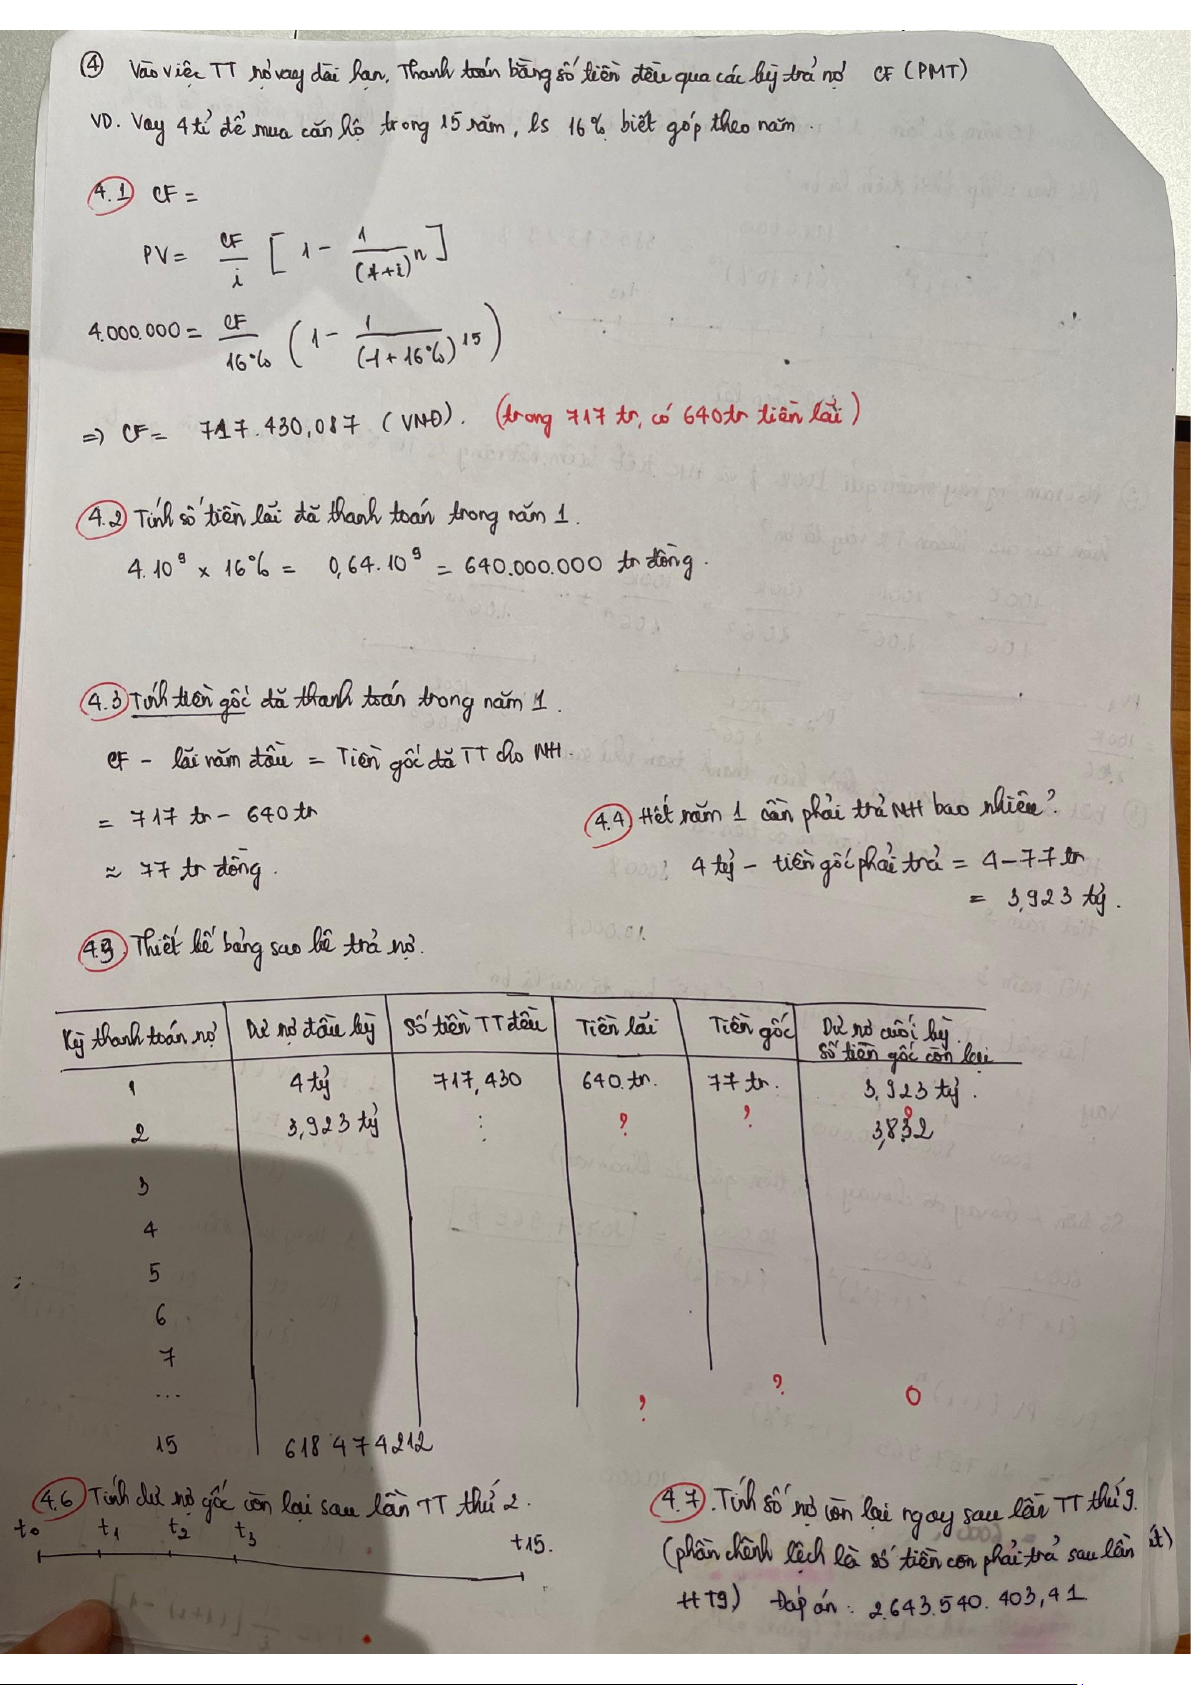 ④ Vào việc TT nợ vay dài hạn, Thanh toán bằng số tiền đều qua các kỳ trả nợ CF (PMT)
VD. Vay 4 tỉ để mua căn hộ trong 15 năm, ls 16% biết góp theo năm.
4.1 CF =
PV = CF/i [1 - 1/(1+i)^n]
4.000.000 = CF/16% (1 - 1/(1+16%)^15)
=> CF = 717.430,087 (VNĐ). (trong 717 tr, có 640tr tiền lãi)
4.2 Tính số tiền lãi đã thanh toán trong năm 1.
4.10^9 x 16% = 0,64.10^9 = 640.000.000 tr đồng.
4.3 Tính tiền gốc đã thanh toán trong năm 1.
CF - lãi năm đầu = Tiền gốc đã TT cho NH.
= 717 tr - 640 tr
≈ 77 tr đồng.
4.4 Hết năm 1 cần phải trả NH bao nhiêu?
4 tỷ - tiền gốc phải trả = 4 - 77 tr
= 3,923 tỷ.
Thiết kế bảng sao kê trả nợ.
Kỳ thanh toán nợ | Dư nợ đầu kỳ | Số tiền TT đều | Tiền lãi | Tiền gốc | Dư nợ cuối kỳ. Số tiền gốc còn lại
1 | 4 tỷ | 717,430 | 640.tr. | 77 tr. | 3,923 tỷ.
2 | 3,923 tỷ | ⋮ | ? | ? | 3,832
3
4
5
6
7
...
? ? 0
15 | 618 474212
4.6 Tính dư nợ gốc còn lại sau lần TT thứ 2.
t0 t1 t2 t3 t15.
4.7. Tính số nợ còn lại ngay sau lần TT thứ 9.
(phần chênh lệch là số tiền còn phải trả sau lần
TT9) Đáp án: 2.643.540.403,41